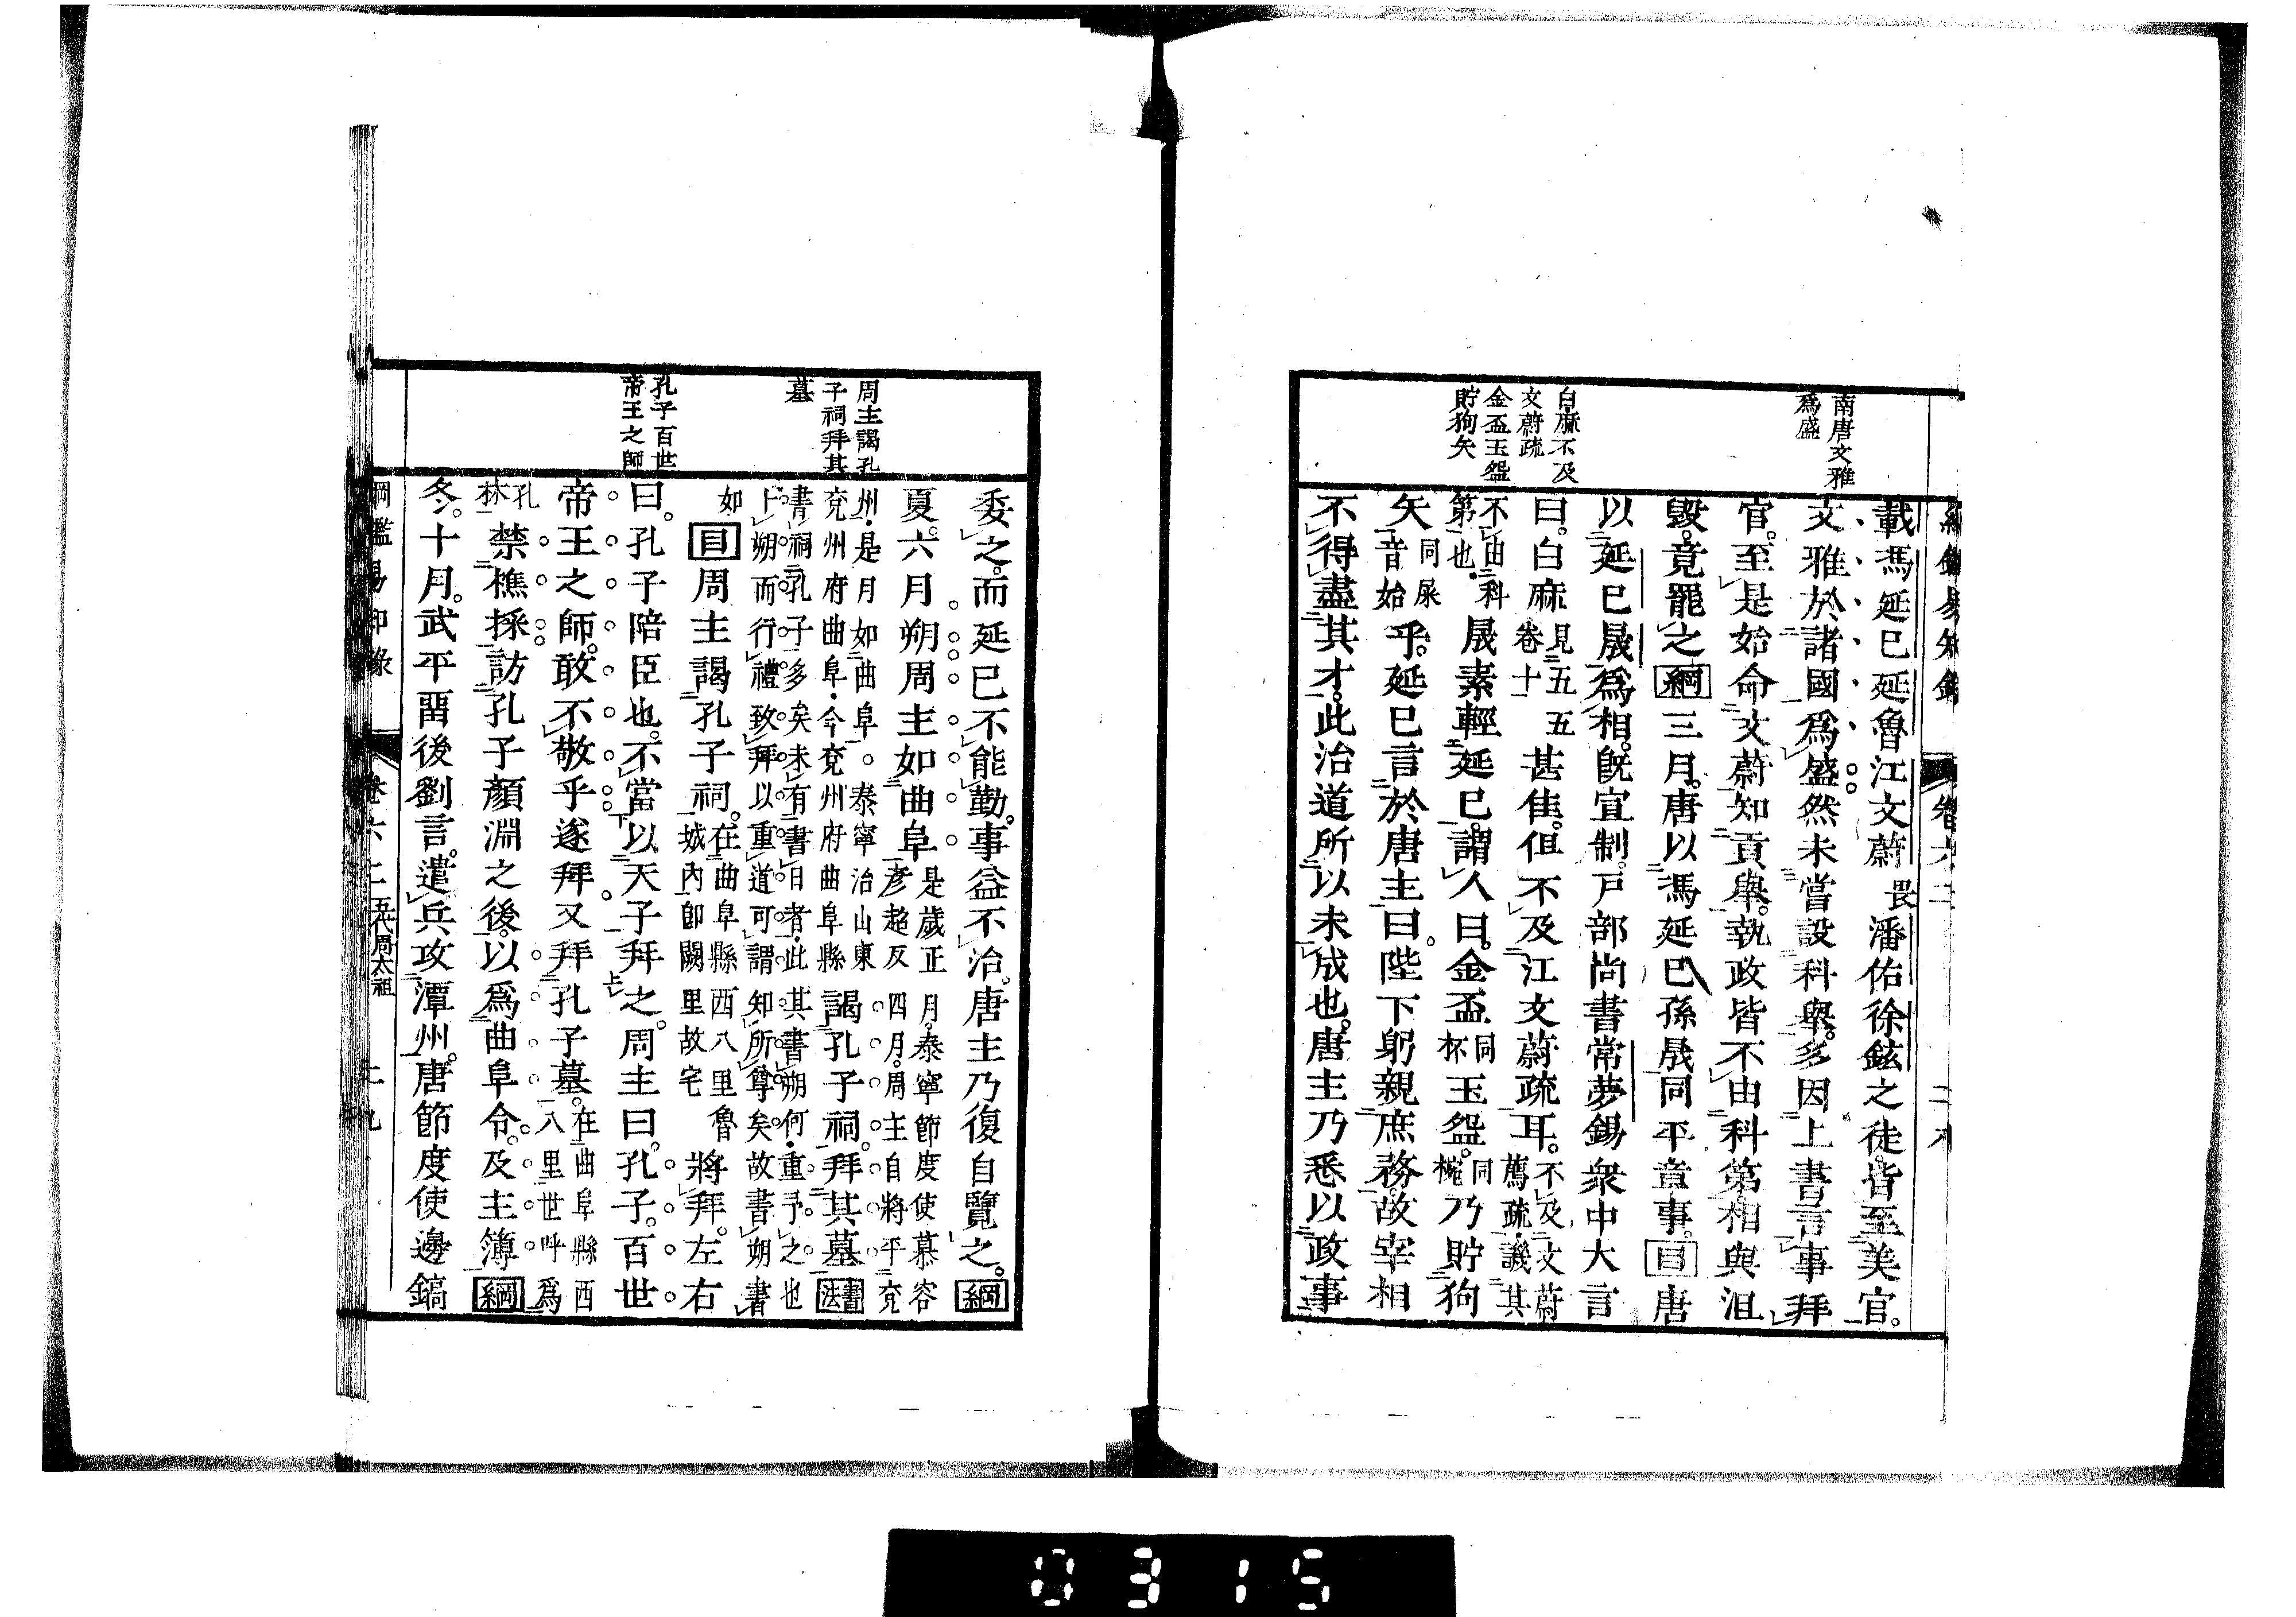 南唐文雅
爲盛
白麻不及
文蔚疏
金盃玉盌
貯狗矢
載馮延巳延魯江文蔚畏潘佑徐鉉之徒皆至美官。
文雅於諸國爲盛然未嘗設科舉。多因上書言事拜
官。至是始命文蔚知貢舉。執政皆不由科第。相與沮
毀。竟罷之綱三月。唐以馮延巳孫晟同平章事。目唐
以延巳晟爲相。旣宣制。戶部尚書常夢錫衆中大言
曰。白麻見五五卷十甚佳。但不及江文蔚疏耳。不及文蔚薦疏譏其
不由科第也晟素輕延巳。謂人曰。金盃同杯玉盌。同椀乃貯狗
矢同屎音始乎。延巳言於唐主曰。陛下躬親庶務。故宰相
不得盡其才。此治道所以未成也。唐主乃悉以政事
周主謁孔
子祠拜其
墓
孔子百世
帝王之師
委之。而延巳不能勤。事益不治。唐主乃復自覽之。綱
夏。六月朔周主如曲阜是歲正月。泰寧節度使慕容彥超反四月。周主自將平兗
州是月如曲阜。泰寧治山東兗州府曲阜今兗州府曲阜縣謁孔子祠。拜其墓書法
書祠孔子多矣未有書日者此其書朔何重予之也
上朔而行禮致拜以重道可謂知所尊矣故書朔書
如目周主謁孔子祠。在曲阜縣西八里魯城內卽闕里故宅將拜。左右
曰。孔子陪臣也。不當以天子拜之。周主曰。孔子。百世
帝王之師。敢不敬乎遂拜又拜孔子墓。在曲阜縣西八里世呼爲
孔林禁樵採訪孔子顏淵之後。以爲曲阜令。及主簿。綱
冬。十月。武平留後劉言。遣兵攻潭州。唐節度使邊鎬
五代周太祖
0315